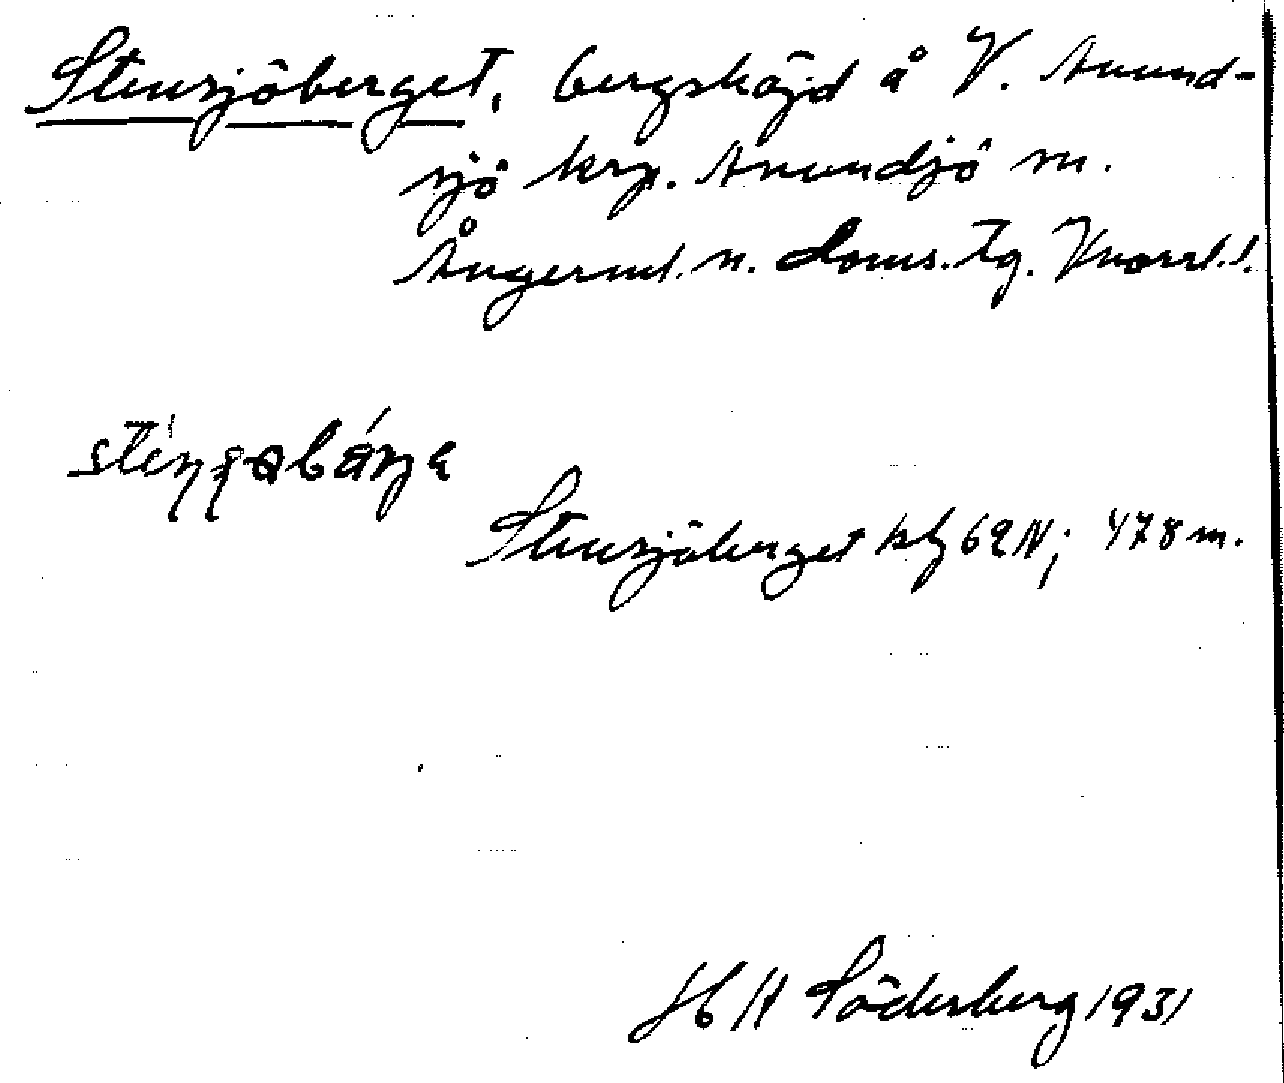 Stensjöberget, bergshöjd å V. Anund-
sjö krp. Anundsjö sn.
Ångerml. n. doms. tg. Vnorrl. l.
Stensjöberget kbl 62 N; 478 m.
H H Söderberg 1931